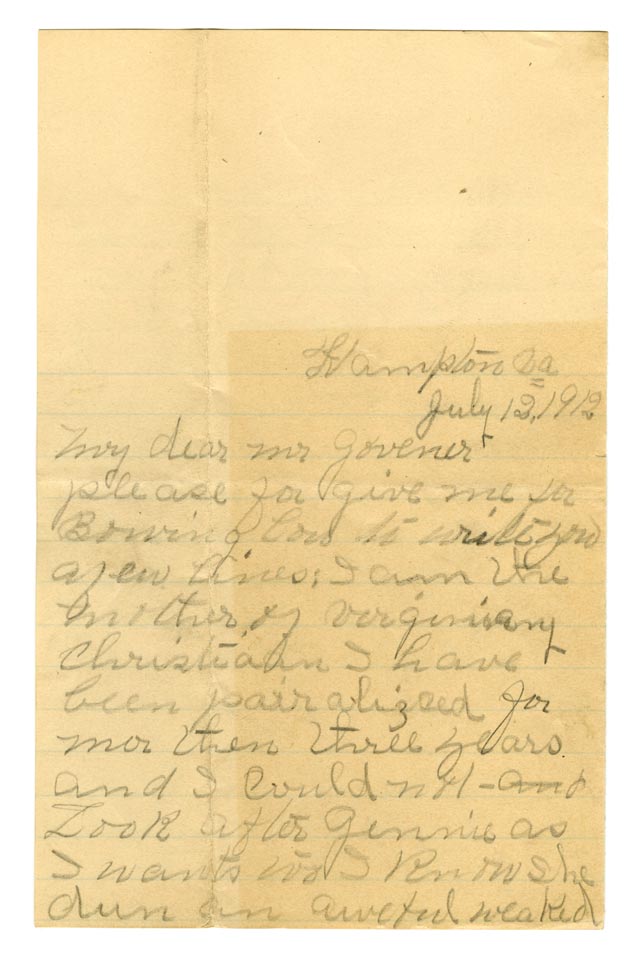 Hampton Va
July 12, 1912
My dear mr govener
please for give me for
Bowing low to write you
a few lines: I am the
mother of Verginiany
Christian I have
been pairalized for
mor then three years
and I could not and
Look after Gennie as
I wants too I know she
dun an aweful weaked